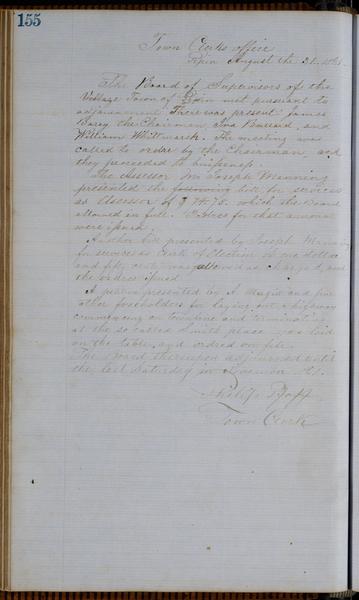 155
Town Clerks office
Pepin August the 31.
The Board of Supervisors of the
Village Town of Pepin met pursuant to
adjournment There was present James
Barry the Chairman, and
William Whitmarsh. The meeting was
called to order by the Chairman, and
they proceeded to business.
The Assessor Mr Joseph Manning
presented the following bill for services
as Assessor of which the Board
allowed in full. Orders for that amount
were issued.
Another bill presented by Joseph Manning
for services as Clerk of Election of one dollar
and fifty cents was allowed as charged, and
the orders issued.
A petition presented by A. and five
other freeholders for laying out a highway
commencing on town line and terminating
at the so called Smith place was laid
on the table, and ordered on file.
The Board thereupon adjourned until
the last Saturday in
Philip Pfaff
Town Clerk